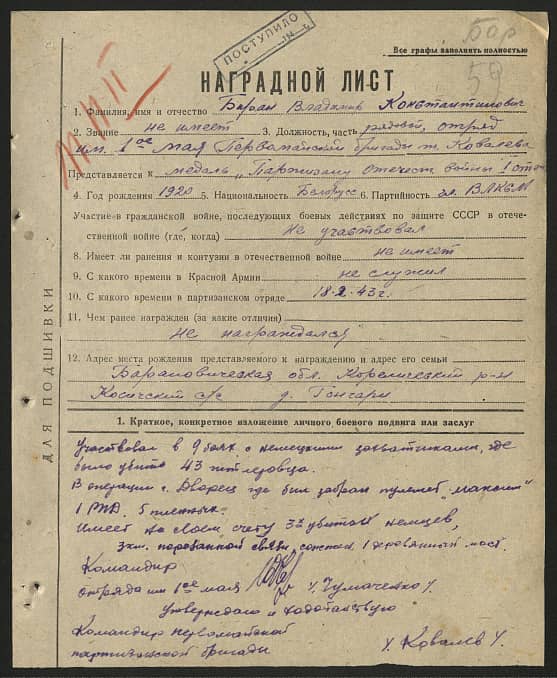 ПОСТУПИЛО
Бар
59
Все графы заполнять полностью
НАГРАДНОЙ ЛИСТ
1. Фамилия, имя и отчество Баран Владимир Константинович
2. Звание не имеет 3. Должность, часть рядовой, отряд
им. 1ое мая Первомайской бригады т. Ковалева
Представляется к медаль „Партизану отечест. войны" I ст.
4. Год рождения 1920 5. Национальность Белорусс 6. Партийность чл. ВЛКСМ
Участие в гражданской войне, последующих боевых действиях по защите СССР в отече-
ственной войне (где, когда) не участвовал
8. Имеет ли ранения и контузии в отечественной войне не имеет
9. С какого времени в Красной Армии не служил
10. С какого времени в партизанском отряде 18.2.43г.
11. Чем ранее награжден (за какие отличия)
не награждался
12. Адрес места рождения представляемого к награждению и адрес его семьи
Барановическая обл. Кореличский р-н
с/с д. Гончары
ДЛЯ ПОДШИВКИ
1. Краткое, конкретное изложение личного боевого подвига или заслуг
Участвовал в 9 боях с немецкими захватчиками, где
было убито 43 гитлеровца.
В операции г. Дворец где был забран пулемет „максим"
1 5 пленных.
Имеет на своем счету 3х убитых немцев,
3 км. порванной связи, сожжен 1 деревянный мост.
Командир
отряда им 1ое мая Чумаченко
Утверждаю и ходатайствую
Командир первомайской
партизанской бригады Ковалев